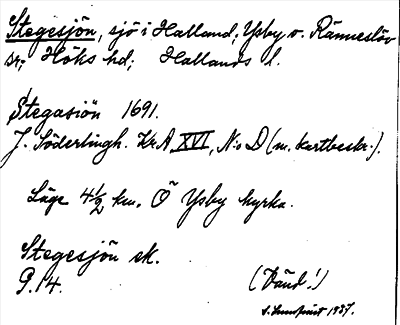 Stegesjön, sjö i Halland; Ysby o. Ränneslöv
sr; Höks hd; Hallands l.
Stegasiön 1691.
J. Söderlingh. Kr A XVI, N:o D (m. kartbeskr.).
Läge 4 1/2 km. Ö Ysby kyrka.
Stegesjön ek.
P. 14. (Vänd!)
1937.